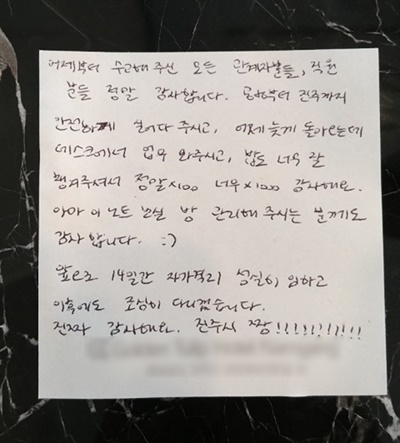 어제부터 수고해 주신 모든 관계자분들, 직원
분들 정말 감사합니다. 공항부터 전주까지
안전하게 실어다 주시고, 어제 늦게 돌아오는데
데스크에서 업무 봐주시고, 밥도 너무 잘
챙겨주셔서 정말x100 너무x1000 감사해요.
아마 이 노트 보실 방 관리해 주시는 분께도
감사합니다. :)
앞으로 14일간 자가격리 성실히 임하고
이후에도 조심히 다니겠습니다.
진짜 감사해요. 전주시 짱!!!!!!!!!!!